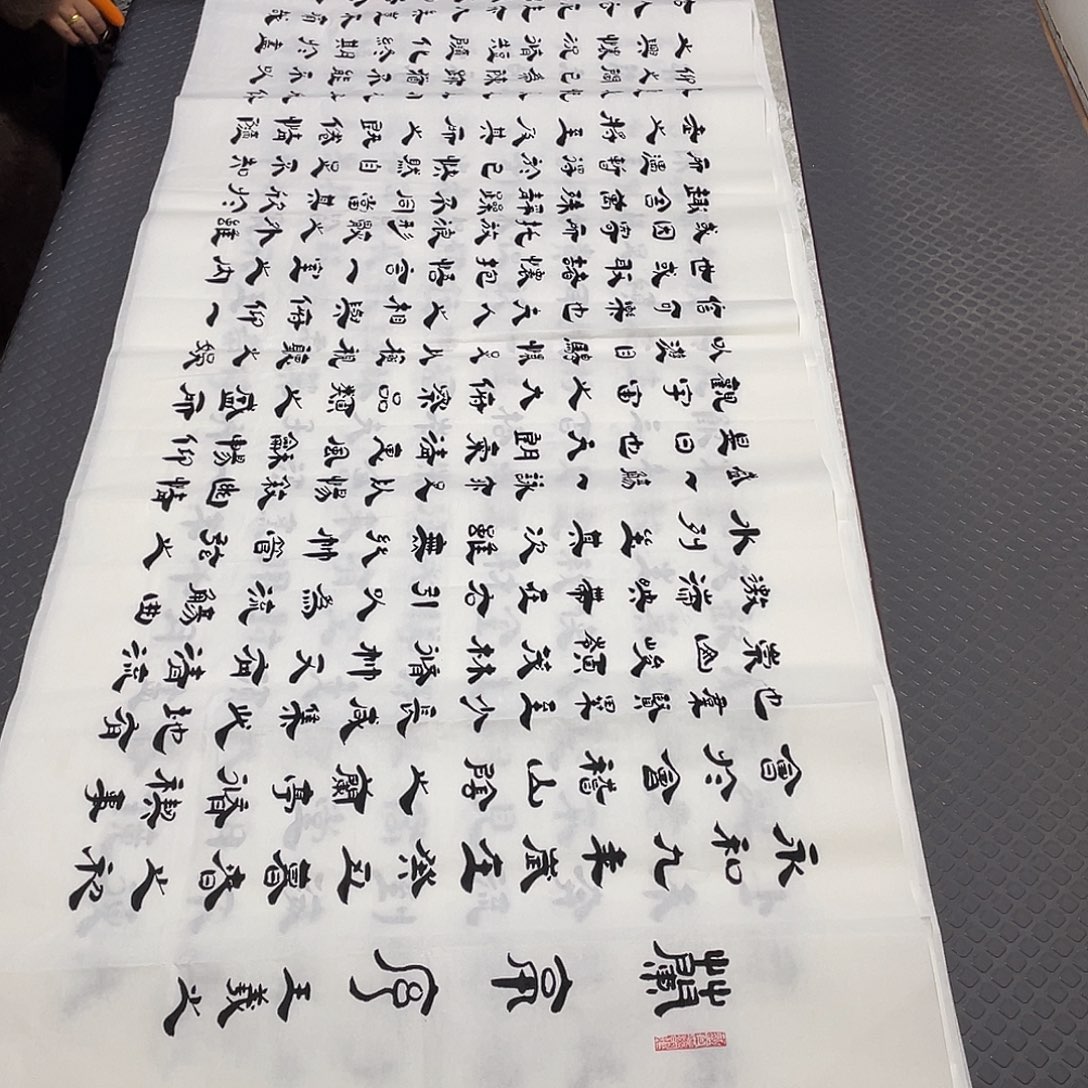 蘭亭序 王羲之
永和九年歲在癸丑暮春之初
會於會稽山陰之蘭亭脩禊事
也羣賢畢至少長咸集此地有
崇山峻領茂林脩竹又有清流
激湍映帶左右引以為流觴曲
水列坐其次雖無絲竹管弦之
盛一觴一詠亦足以暢敘幽情
是日也天朗氣清惠風和暢仰
觀宇宙之大俯察品類之盛所
以遊目騁懷足以極視聽之娛
信可樂也夫人之相與俯仰一
世或取諸懷抱悟言一室之內
或因寄所託放浪形骸之外雖
趣舍萬殊靜躁不同當其欣於
所遇暫得於己快然自足不知
老之將至及其所之既惓情隨
仰之間已為陳迹猶不能不以
之興懷況脩短隨化終期於盡